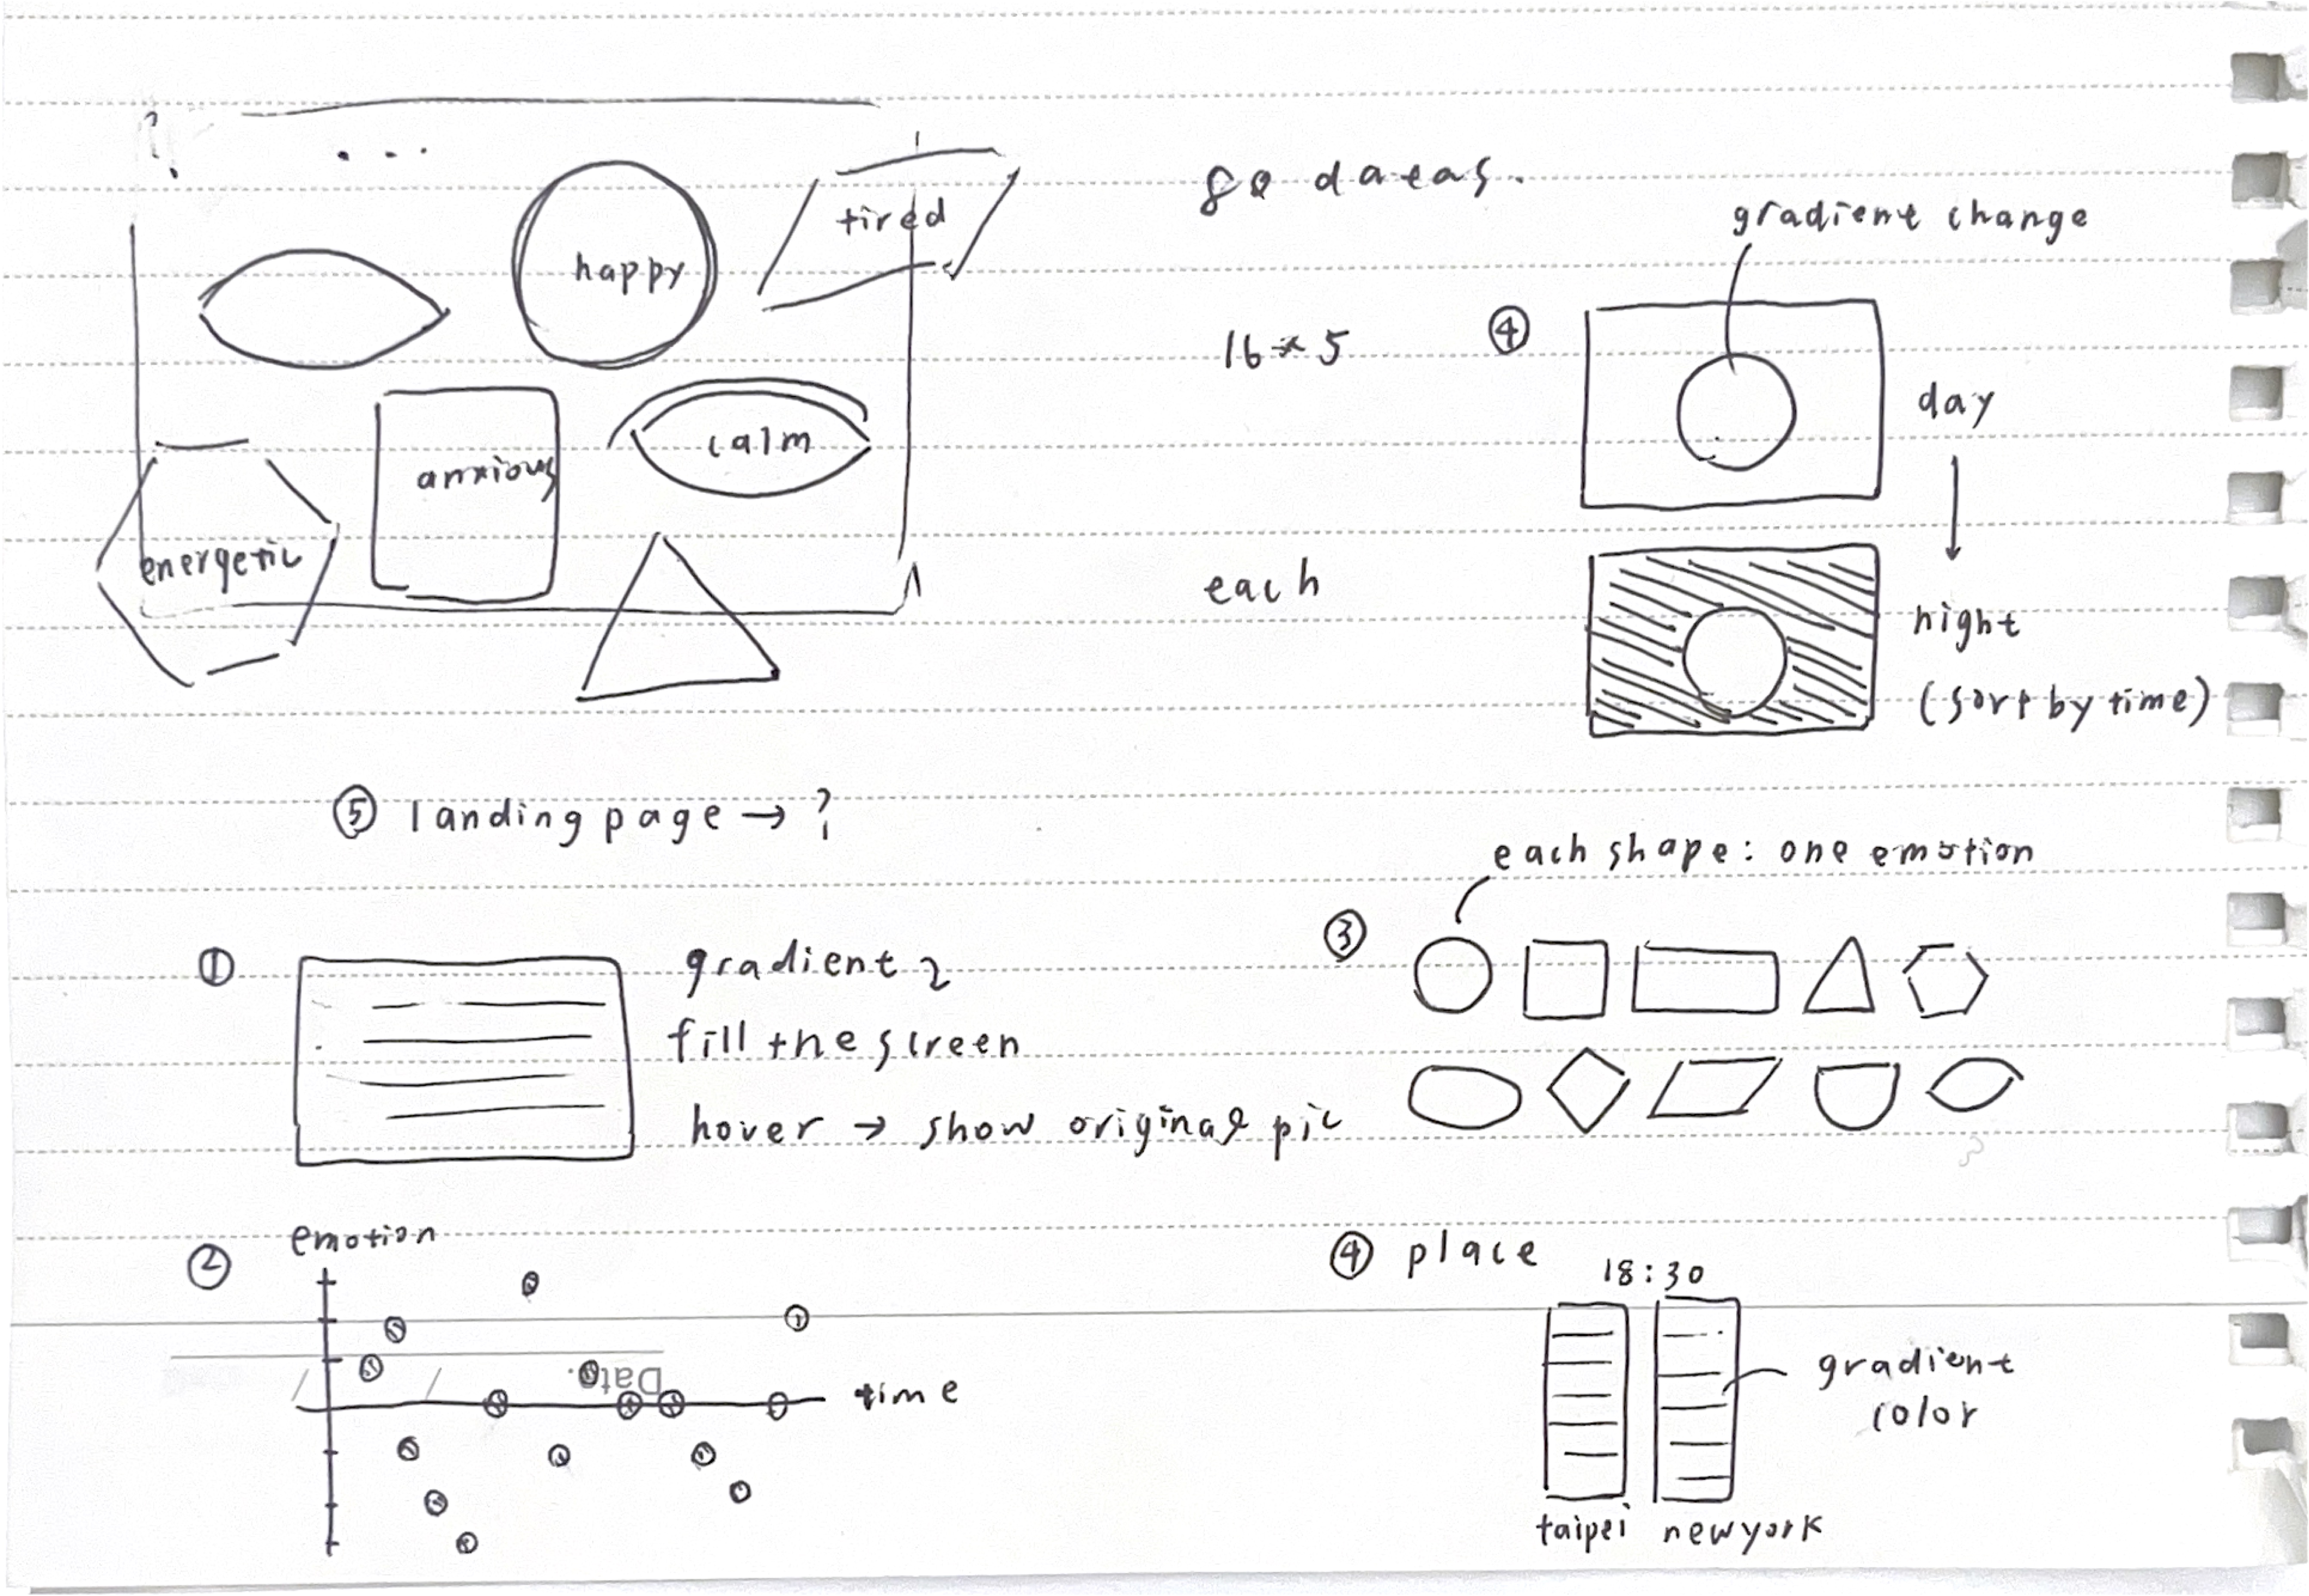 happy
tired
anxious
calm
energetic
80 dataas.
16 * 5
each
gradient change
④
day
night
(sort by time)
⑤ landing page → ?
①
gradient 2
fill the screen
hover → show original pic
each shape: one emotion
③
②
emotion
time
Date.
④ place
18:30
gradient
color
taipei
newyork